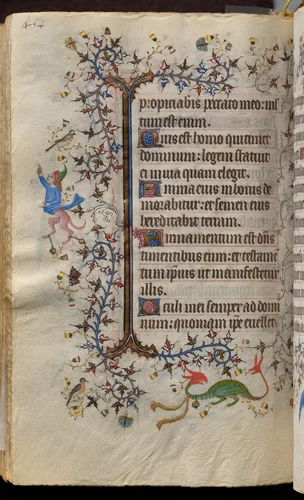 propiciabis peccato meo: mul
tum est enim.
Quis est homo qui timet
dominum: legem statuit
ei in via quam elegit.
Anima eius in bonis de
morabitur: et semen eius
hereditabit terram.
Firmamentum est dns
timentibus eum: et testame
tum ipsius ut manifestetur
illis.
Oculi mei semper ad domi
num: quoniam ipse evellet